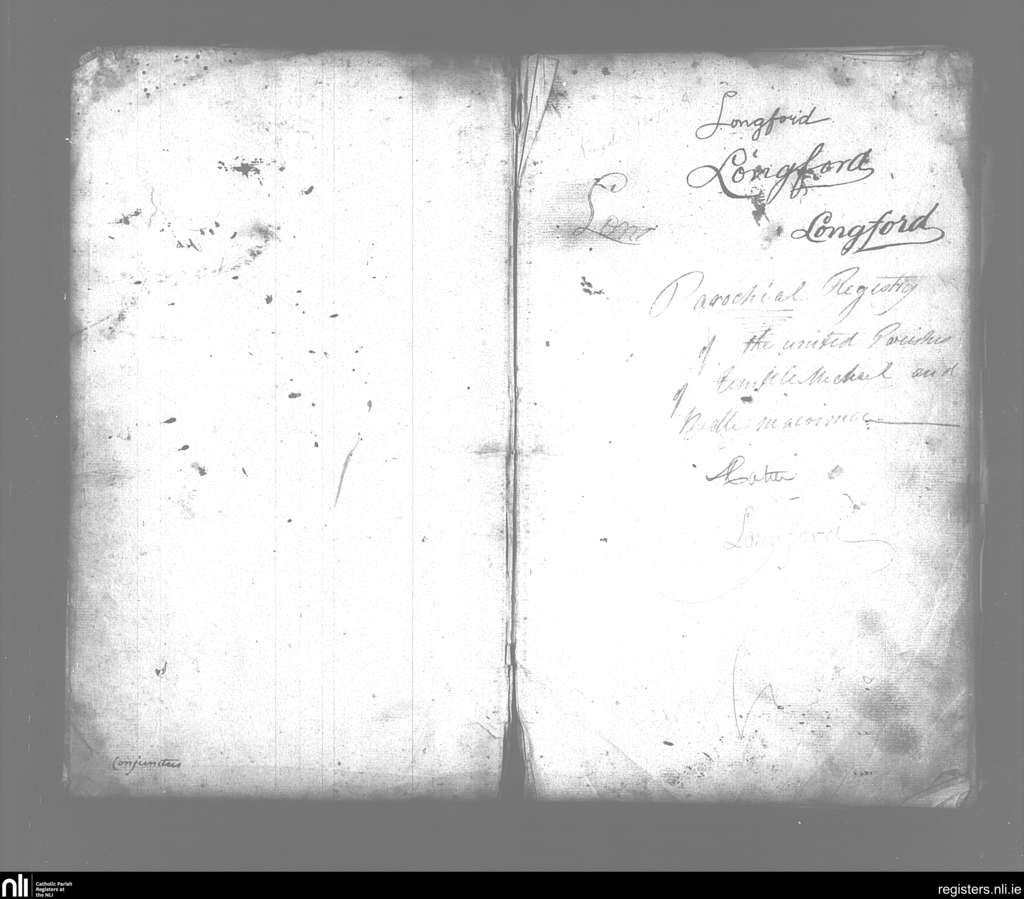 Conjunctus
Longford
Longford
Longford
Lon
Parochial Registry
of the united Parishes
of temple Michael and
Longford
nli
Catholic Parish
Registers at
the NLI
registers.nli.ie